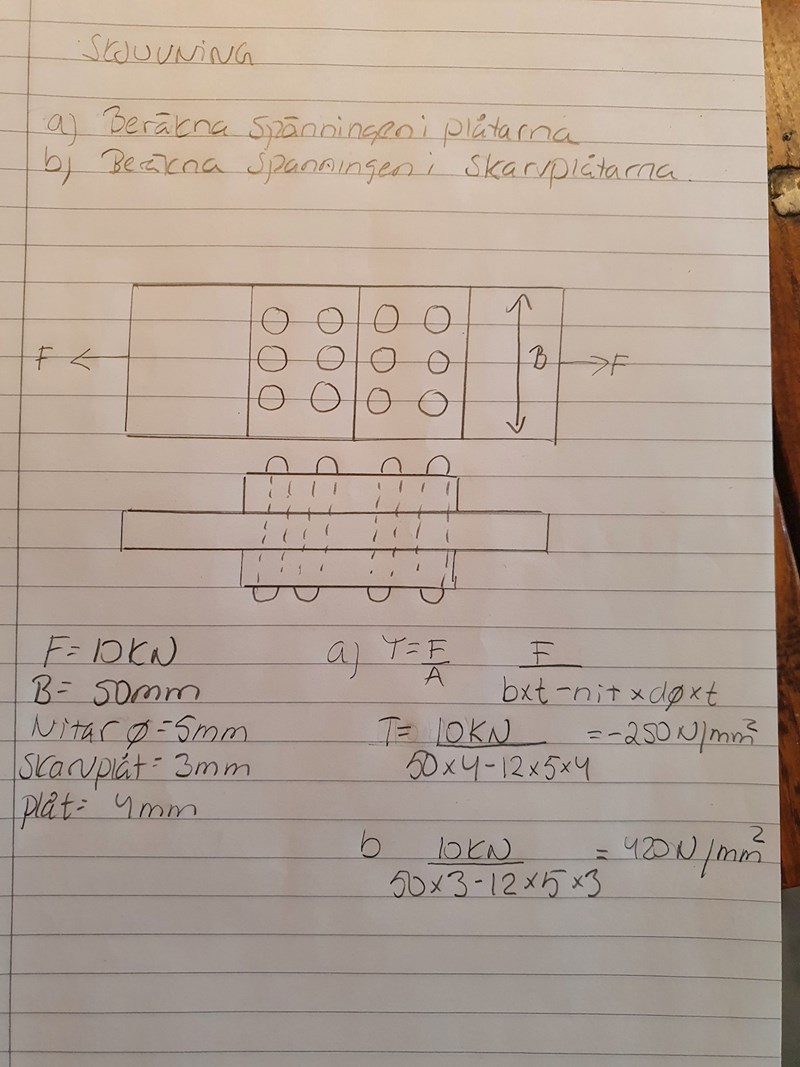 SKJUVNING
a) Beräkna spänningen i plåtarna
b) Beräkna spanningen i skarvplåtarna.
F ← B → F
F = 10KN
B = 50mm
Nitar ø = 5mm
Skarvplåt = 3mm
plåt = 4mm
a) τ = F/A F / b×t-nit×dø×t
T = 10KN / 50×4-12×5×4 = -250N/mm²
b 10KN / 50×3-12×5×3 = 420N/mm²